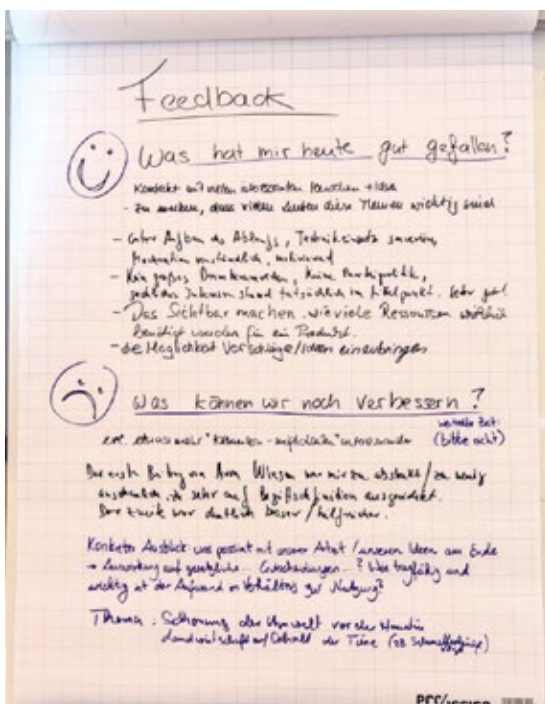 Feedback
Was hat mir heute gut gefallen?
Kontakt mit vielen interessanten Menschen + Idee
- Zu merken, dass vielen Leuten diese Themen wichtig sind
- Guter Aufbau des Ablaufs, Technikeinsatz souverän,
Moderation verständlich,
- Kein großes Drumherumreden, keine Parteipolitik,
sachliches Interesse stand tatsächlich im Mittelpunkt. Sehr gut!
- Das Sichtbar machen, wieviele Ressourcen wirklich
benötigt werden für ein Produkt.
- die Möglichkeit Vorschläge/Ideen einzubringen
Was können wir noch verbessern?
evtl. etwas mehr
(bitte acht)
Der erste Beitrag von war mir zu abstrakt / zu wenig
anschaulich, zu sehr auf Begriffsdefinition ausgerichtet.
Der zweite war deutlich besser / hilfreicher.
Konkreter Ausblick: was passiert mit unserer Arbeit / unseren Ideen am Ende
→ Auswirkung auf gesetzliche... Entscheidungen...? Wie tragfähig und
wichtig ist der Aufwand im Verhältnis zur Nutzung?
Thema: Schonung der Umwelt vor der
Landwirtschaft der Tiere (zB